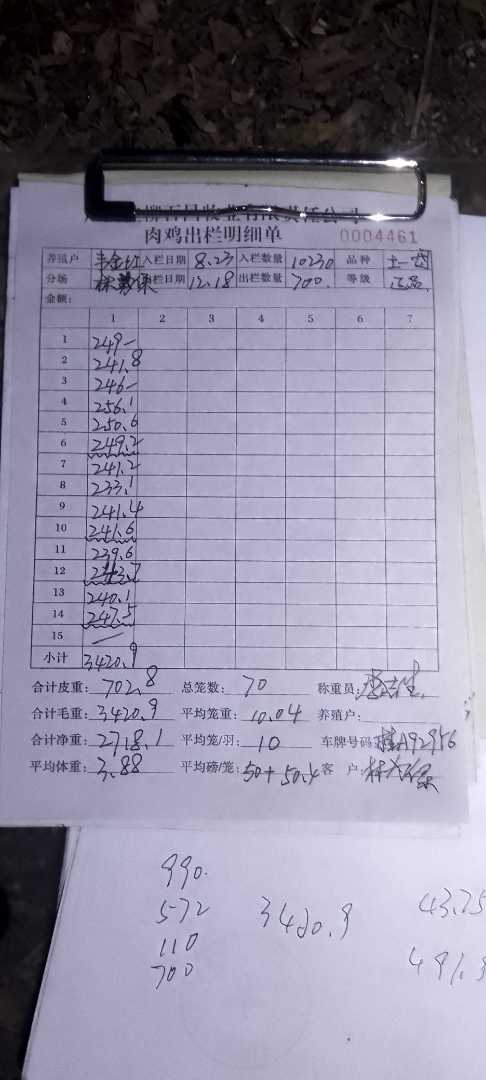 有限责任公司
肉鸡出栏明细单 0004461
养殖户 入栏日期 8.23 入栏数量 10230 品种 土一
分场 栏日期 12.18 出栏数量 700. 等级 正品.
金额:
1 2 3 4 5 6 7
1 249-
2 241.8
3 246-
4 256.1
5 250.6
6 249.2
7 241.2
8 233.1
9 241.4
10 241.6
11 239.6
12 243.7
13 240.1
14 247.5
15
小计 3420.9
合计皮重: 702.8 总笼数: 70 称重员:
合计毛重: 3420.9 平均笼重: 10.04 养殖户:
合计净重: 2718.1 平均笼/羽: 10 车牌号码: 桂A92956
平均体重: 3.88 平均磅/笼: 50+50.4 客 户:
990.
572 3420.9 43.75
110
700 491.9